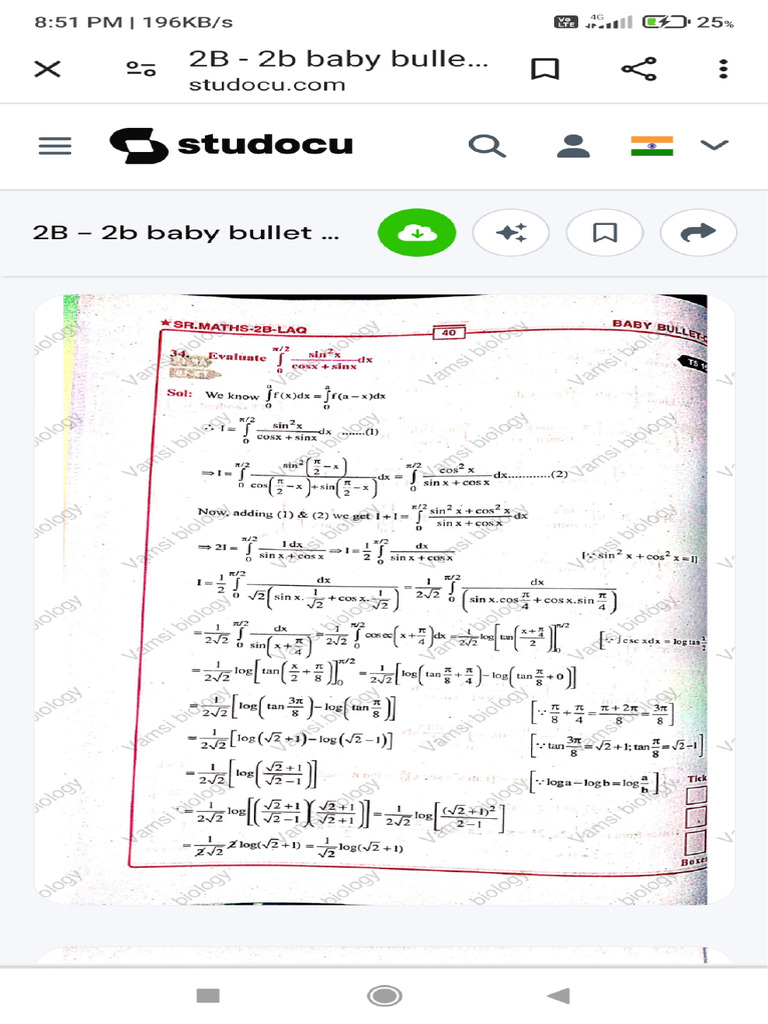 8:51 PM | 196KB/s Vo LTE 4G 25%
2B - 2b baby bulle...
studocu.com
studocu
2B – 2b baby bullet ...
★SR.MATHS-2B-LAQ 40 BABY BULLET-
34. Evaluate ∫₀^(π/2) sin²x/(cosx + sinx) dx
Sol: We know ∫₀^a f(x)dx = ∫₀^a f(a – x)dx
∴ I = ∫₀^(π/2) sin²x/(cosx + sinx) dx .......(1)
⇒ I = ∫₀^(π/2) sin²(π/2 – x)/(cos(π/2 – x) + sin(π/2 – x)) dx = ∫₀^(π/2) cos² x/(sin x + cos x) dx............(2)
Now, adding (1) & (2) we get I + I = ∫₀^(π/2) (sin² x + cos² x)/(sin x + cos x) dx
⇒ 2I = ∫₀^(π/2) 1 dx/(sin x + cos x) ⇒ I = 1/2 ∫₀^(π/2) dx/(sin x + cos x) [∵ sin² x + cos² x = 1]
I = 1/2 ∫₀^(π/2) dx/(√2(sin x. 1/√2 + cos x. 1/√2)) = 1/(2√2) ∫₀^(π/2) dx/(sin x.cos π/4 + cos x.sin π/4)
= 1/(2√2) ∫₀^(π/2) dx/sin(x + π/4) = 1/(2√2) ∫₀^(π/2) cosec(x + π/4)dx = 1/(2√2) log[tan((x + π/4)/2)]₀^(π/2) [∵ ∫csc xdx = log tan
= 1/(2√2) log[tan(x/2 + π/8)]₀^(π/2) = 1/(2√2)[log(tan π/8 + π/4) – log(tan π/8 + 0)]
= 1/(2√2)[log(tan 3π/8) – log(tan π/8)] [∵ π/8 + π/4 = (π + 2π)/8 = 3π/8]
= 1/(2√2)[log(√2 + 1) – log(√2 – 1)] [∵ tan 3π/8 = √2 + 1; tan π/8 = √2 – 1]
= 1/(2√2)[log((√2 + 1)/(√2 – 1))] [∵ loga – logb = log a/b]
= 1/(2√2) log[((√2 + 1)/(√2 – 1))((√2 + 1)/(√2 + 1))] = 1/(2√2) log[(√2 + 1)²/(2 – 1)]
= 1/(2√2) 2log(√2 + 1) = 1/√2 log(√2 + 1)
Tick
Vamsi biology